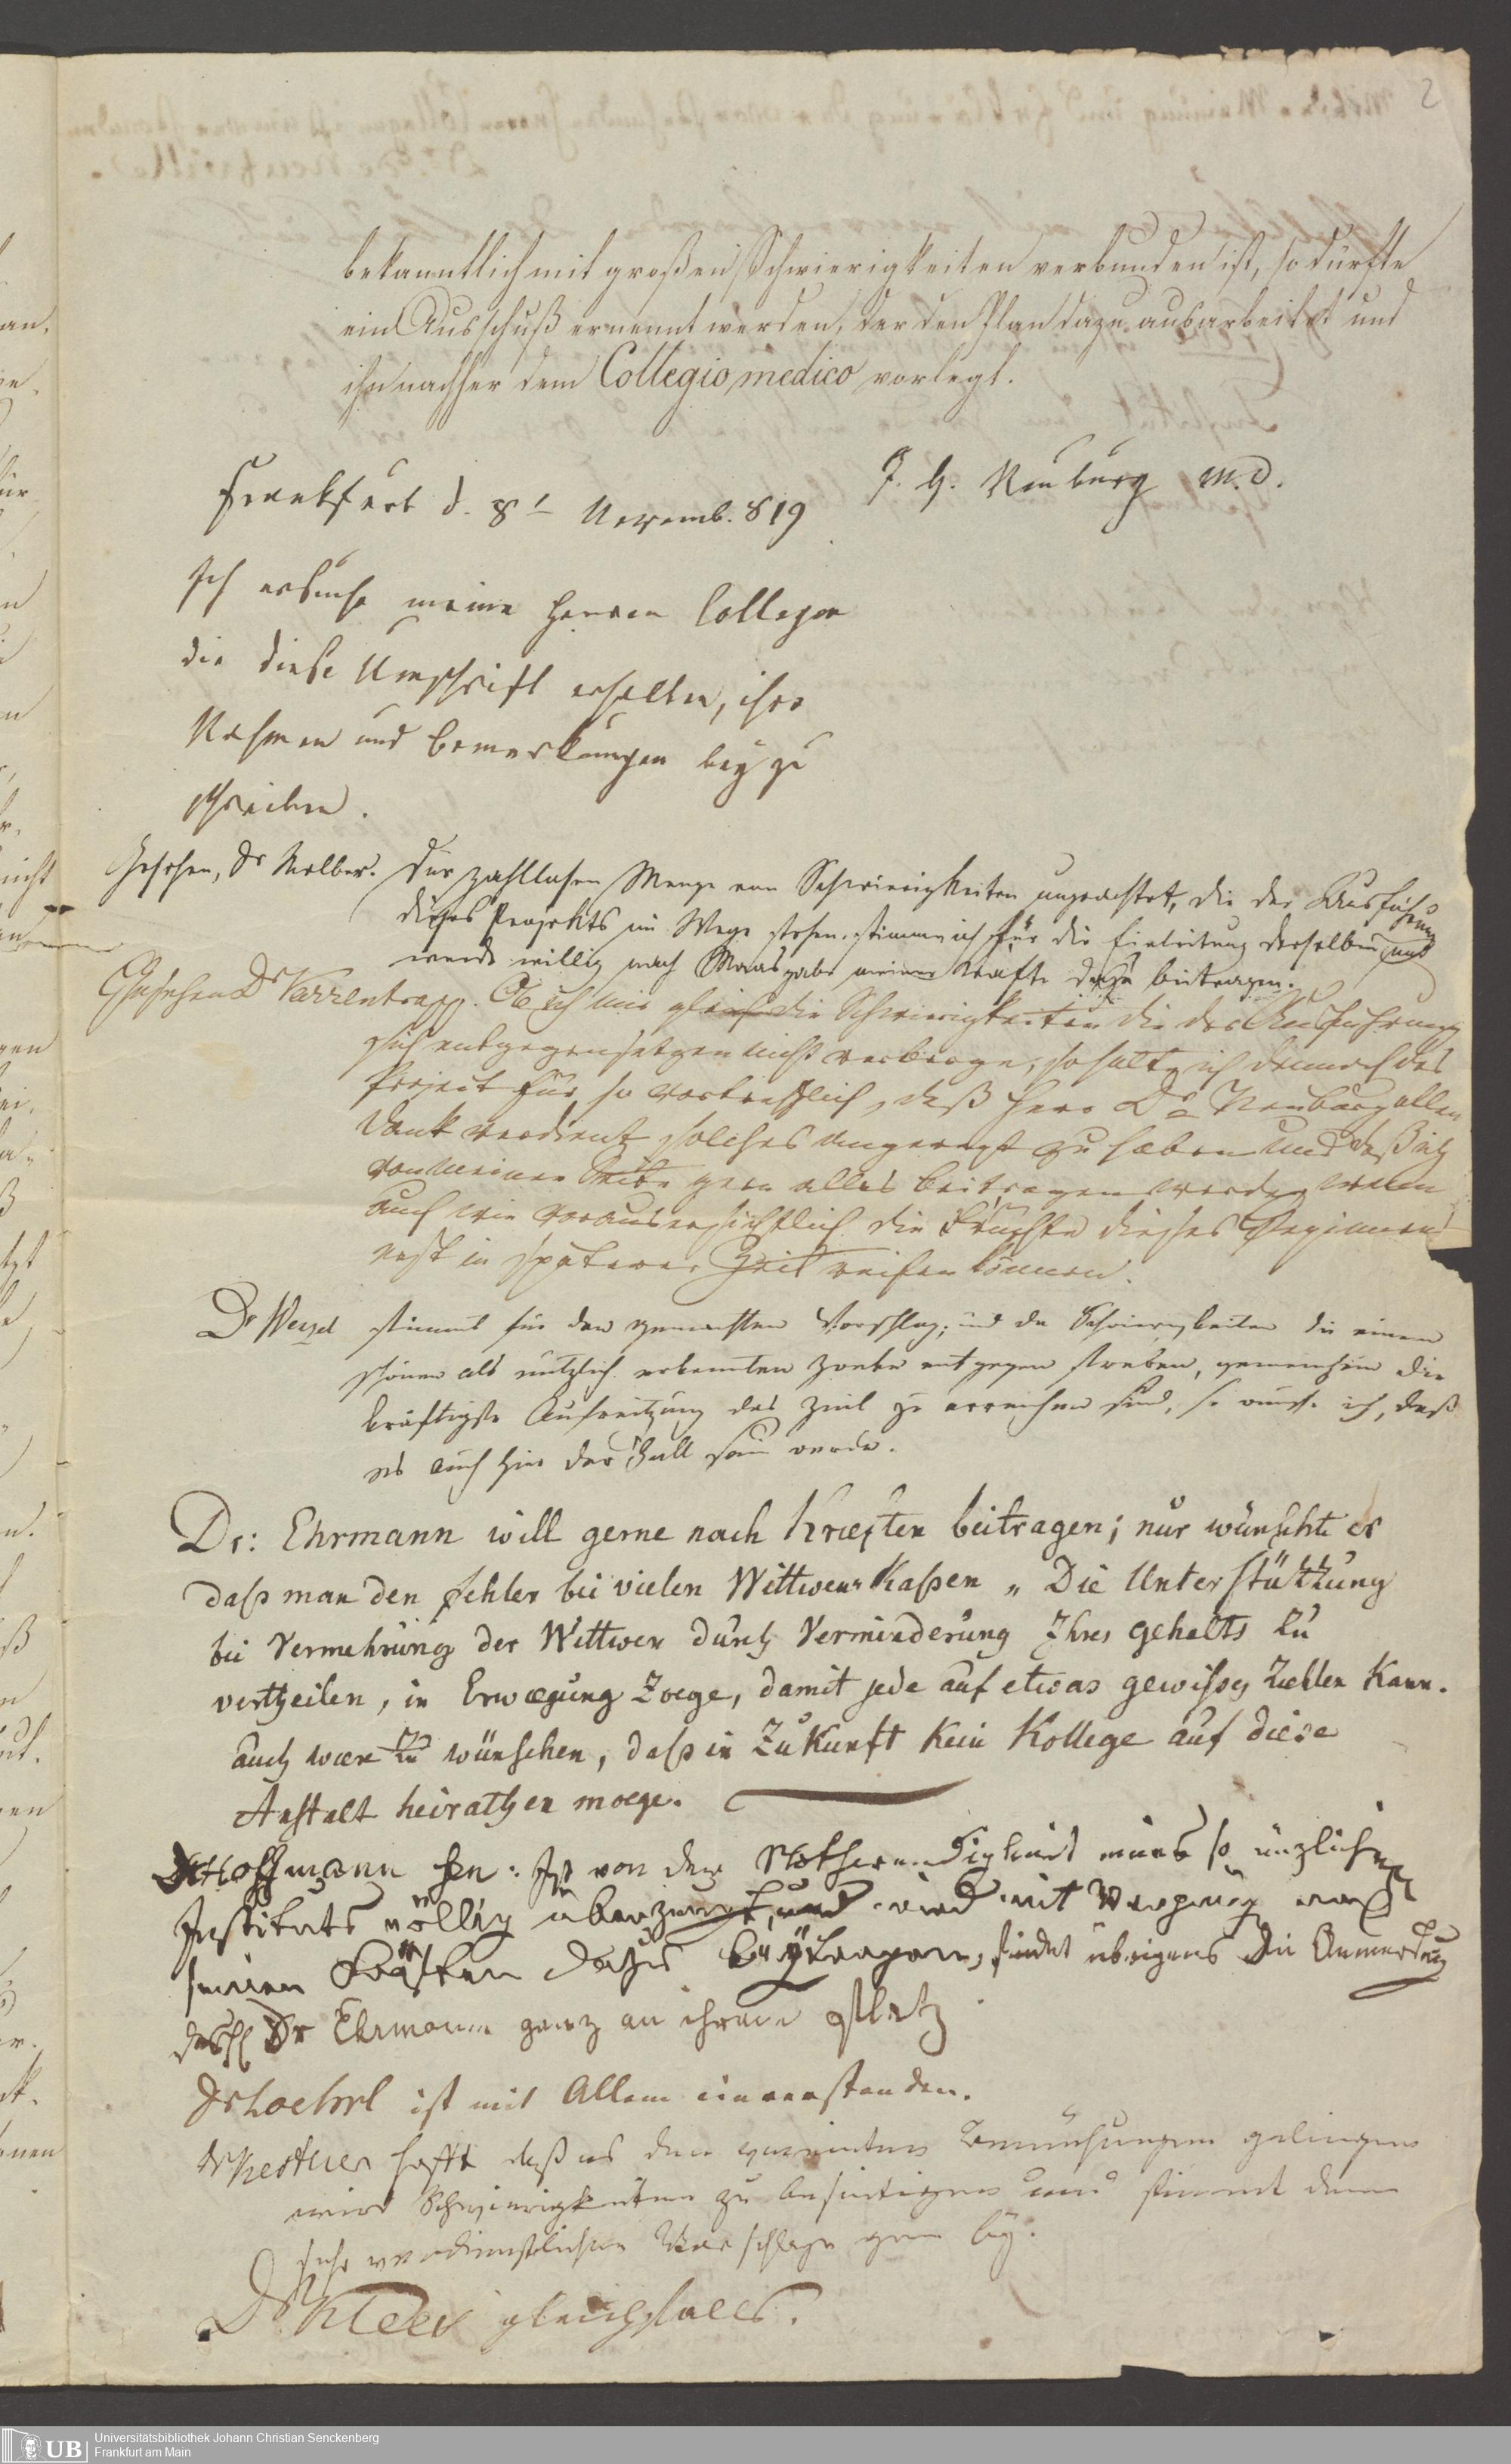 2
bekanntlich mit großen Schwierigkeiten verbunden ist, so dürfte
ein Ausschuß ernennt werden, der den Plan dazu ausarbeitet und
ihn nachher dem Collegio medico vorlegt.
J. G. Neuburg M.D.
Frankfurt d. 8t Novemb. 819
Ich ersuche meine Herren Collegen
die diese Umschrift erhalten, ihre
Nahmen und Bemerkungen bey zu
schreiben.
Gesehen, Dr Melber. Der zahllosen Menge von Schwierigkeiten ungeachtet, die der Ausführung
dieses Projekts im Wege stehen, stimme ich für die Einleitung desselben und
werde willig nach Maasgabe meiner Kräfte dazu beitragen.
Gesehen Dr Varrentrapp. Ob ich mir gleich die Schwierigkeiten die der Ausführung
sich entgegensetzen nicht verberge, so halte ich dennoch das
Project für so vortrefflich, daß Herr Dr Neuburg allen
Dank verdient solches angeregt zu haben und daß ich
von meiner Seite gern alles beitragen werde, wenn
auch wie vorauszusichtlich die Früchte dieses Beginnens
erst in späterer Zeit reifen können.
Dr Wenzel stimmt für den gemachten Vorschlag; und da Schwierigkeiten die einem
schönen als nützlich erkannten Zwecke entgegen streben, gemeinhin die
kräftigste Anreitzung das Ziel zu erreichen sind, so wünsche ich, daß
es auch hier der Fall sein werde.
Dr: Ehrmann will gerne nach Kræften beitragen; nur wünschte er
daß man den Fehler bei vielen Wittwen Kaßen „ Die Unterstüttzung
bei Vermehrung der Wittwen durch Verminderung Ihres gehalts zu
vertheilen, in Erwægung zoege, damit jede auf etwas gewißes zæhlen Kann.
auch wære zu wünschen, daß in Zukunft Kein Kollege auf diese
Anstalt heirathen moege.
Dr Hoffmann sen: Ist von der Nothwendigkeit eines so nüzlichen
Instituts völlig überzeugt, und wird mit Vergnügen nach
seinen Kräften dazu beytragen, findet übrigens die Anmerkung
des H Dr Ehrmann ganz an ihrem Platz.
Dr Loehrl ist mit Allem einverstanden.
Dr Kestner hofft daß es den vereinten Bemühungen gelingen
wird Schwierigkeiten zu beseitigen und stimmt dem
sehr verdienstlichen Vorschlage gern bey.
Dr. Kloss gleichfalls.
UB
Universitätsbibliothek Johann Christian Senckenberg
Frankfurt am Main